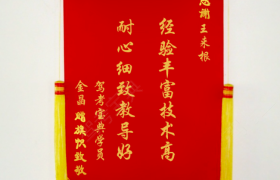 感谢王来根
经验丰富技术高
耐心细致教导好
驾考宝典学员
金晶 赠旗帜致敬